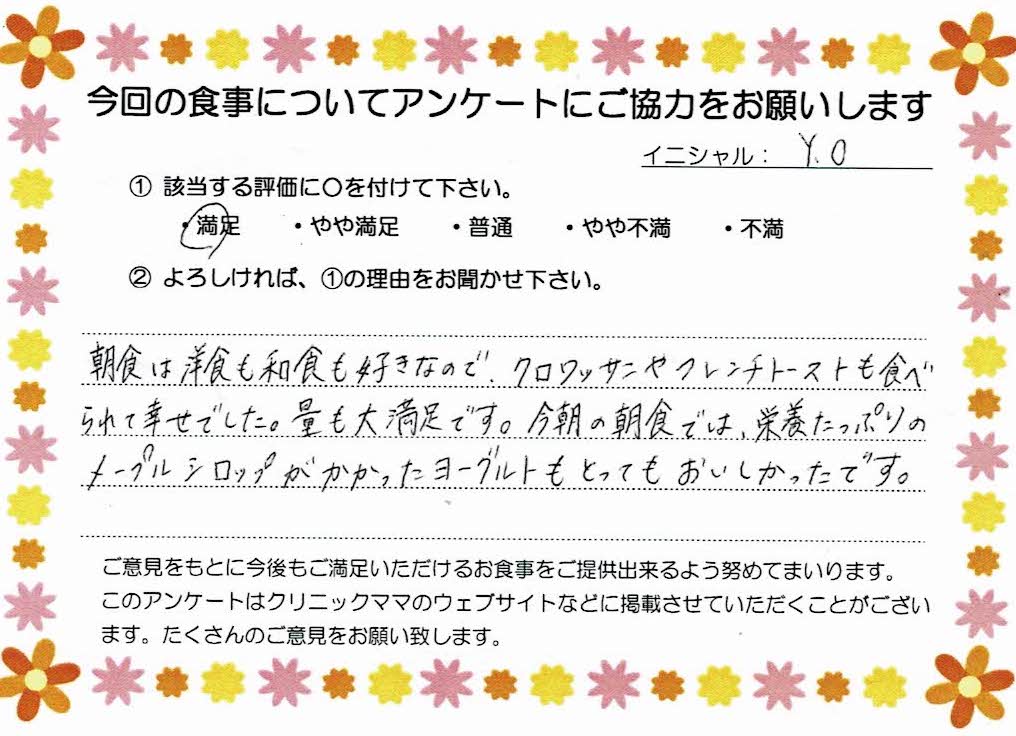 今回の食事についてアンケートにご協力をお願いします
イニシャル： Y.O
① 該当する評価に〇を付けて下さい。
・満足 ・やや満足 ・普通 ・やや不満 ・不満
② よろしければ、①の理由をお聞かせ下さい。
朝食は洋食も和食も好きなので、クロワッサンやフレンチトーストも食べ
られて幸せでした。量も大満足です。今朝の朝食では、栄養たっぷりの
メープルシロップがかかったヨーグルトもとってもおいしかったです。
ご意見をもとに今後もご満足いただけるお食事をご提供出来るよう努めてまいります。
このアンケートはクリニックママのウェブサイトなどに掲載させていただくことがござい
ます。たくさんのご意見をお願い致します。